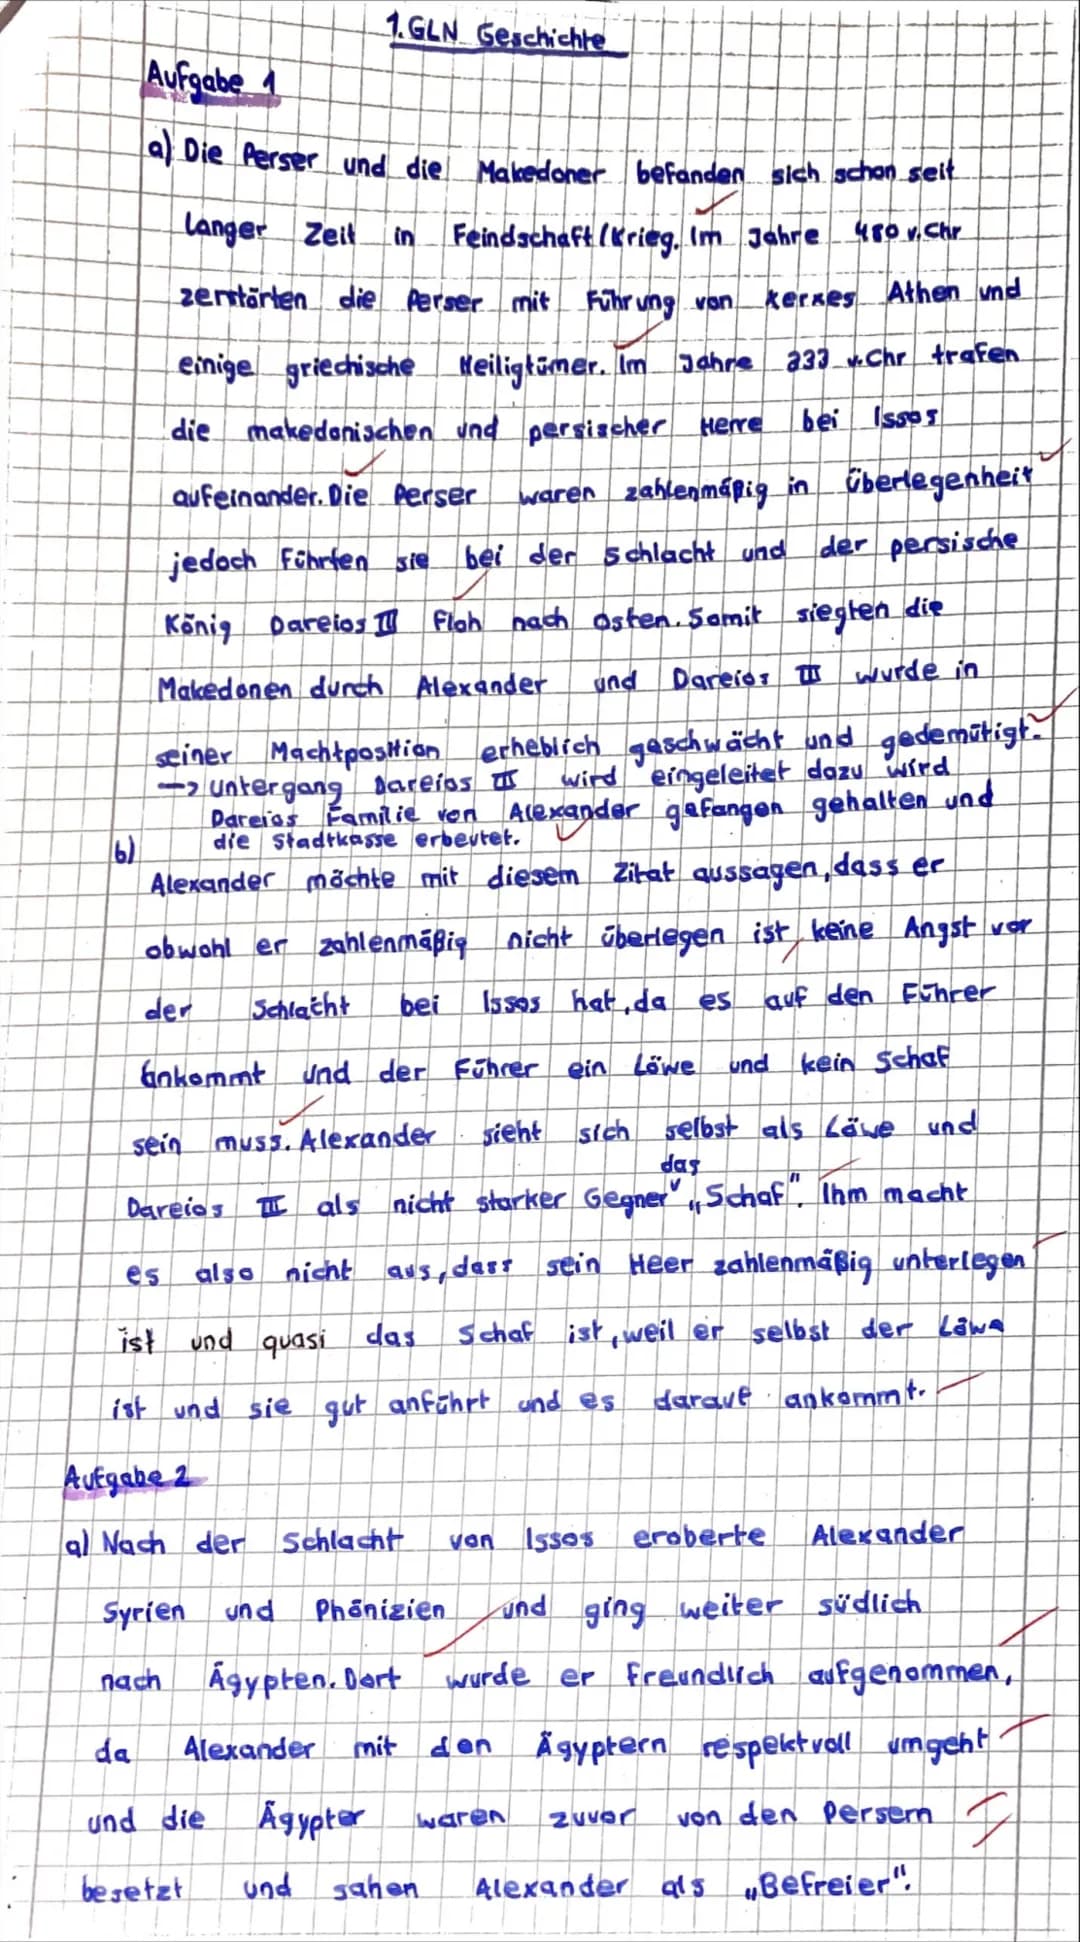 1. GLN Geschichte
Aufgabe 1
a) Die Perser und die Makedoner befanden sich schon seit
langer Zeit in Feindschaft/Krieg. Im Jahre 480 v.Chr
zerstörten die Perser mit Führung von Xerxes Athen und
einige griechische Heiligtümer. Im Jahre 333 v.Chr trafen
die makedonischen und persischer Herre bei Issos
aufeinander. Die Perser waren zahlenmäßig in überlegenheit
jedoch führten sie bei der schlacht und der persische
König Dareios III floh nach Osten. Somit siegten die
Makedonen durch Alexander und Dareios III wurde in
seiner Machtposition erheblich geschwächt und gedemütigt.
→ untergang Dareios III wird eingeleitet dazu wird
Dareios Familie von Alexander gefangen gehalten und
die Stadtkasse erbeutet.
b)
Alexander möchte mit diesem Zitat aussagen, dass er
obwohl er zahlenmäßig nicht überlegen ist, keine Angst vor
der Schlacht bei Issos hat, da es auf den Führer
ankommt und der Führer ein Löwe und kein Schaf
sein muss. Alexander sieht sich selbst als Löwe und
das
Dareios III als nicht starker Gegner „Schaf". Ihm macht
es also nicht aus, dass sein Heer zahlenmäßig unterlegen
ist und quasi das Schaf ist, weil er selbst der Löwe
ist und sie gut anführt und es darauf ankommt.
Aufgabe 2
a) Nach der Schlacht von Issos eroberte Alexander
Syrien und Phönizien und ging weiter südlich
nach Ägypten. Dort wurde er freundlich aufgenommen,
da Alexander mit den Ägyptern respektvoll umgeht
und die Ägypter waren zuvor von den Persern
besetzt und sahen Alexander als „Befreier".